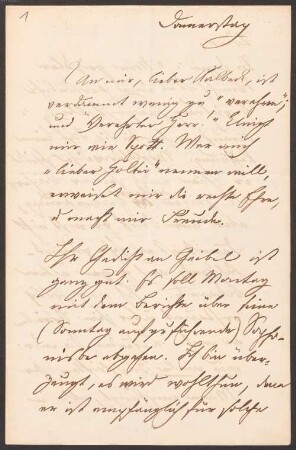 1
Donnerstag
An mir, lieber Kalbeck, ist
verdammt wenig zu "verehren";
und "Verehrter Herr!" klingt
mir wie Spott. Wer mich
"lieber Holtei" nennen will,
erweiset mir die rechte Ehre,
u macht mir Freude.
Ihr Gedicht an Geibel ist
ganz gut. Es soll Montag
mit dem Berichte über seine
(Sonntag aufzuführende) Sopho-
nisbe abgehen. Ich bin über-
zeugt, es wird wohlthun, denn
er ist empfänglich für solche